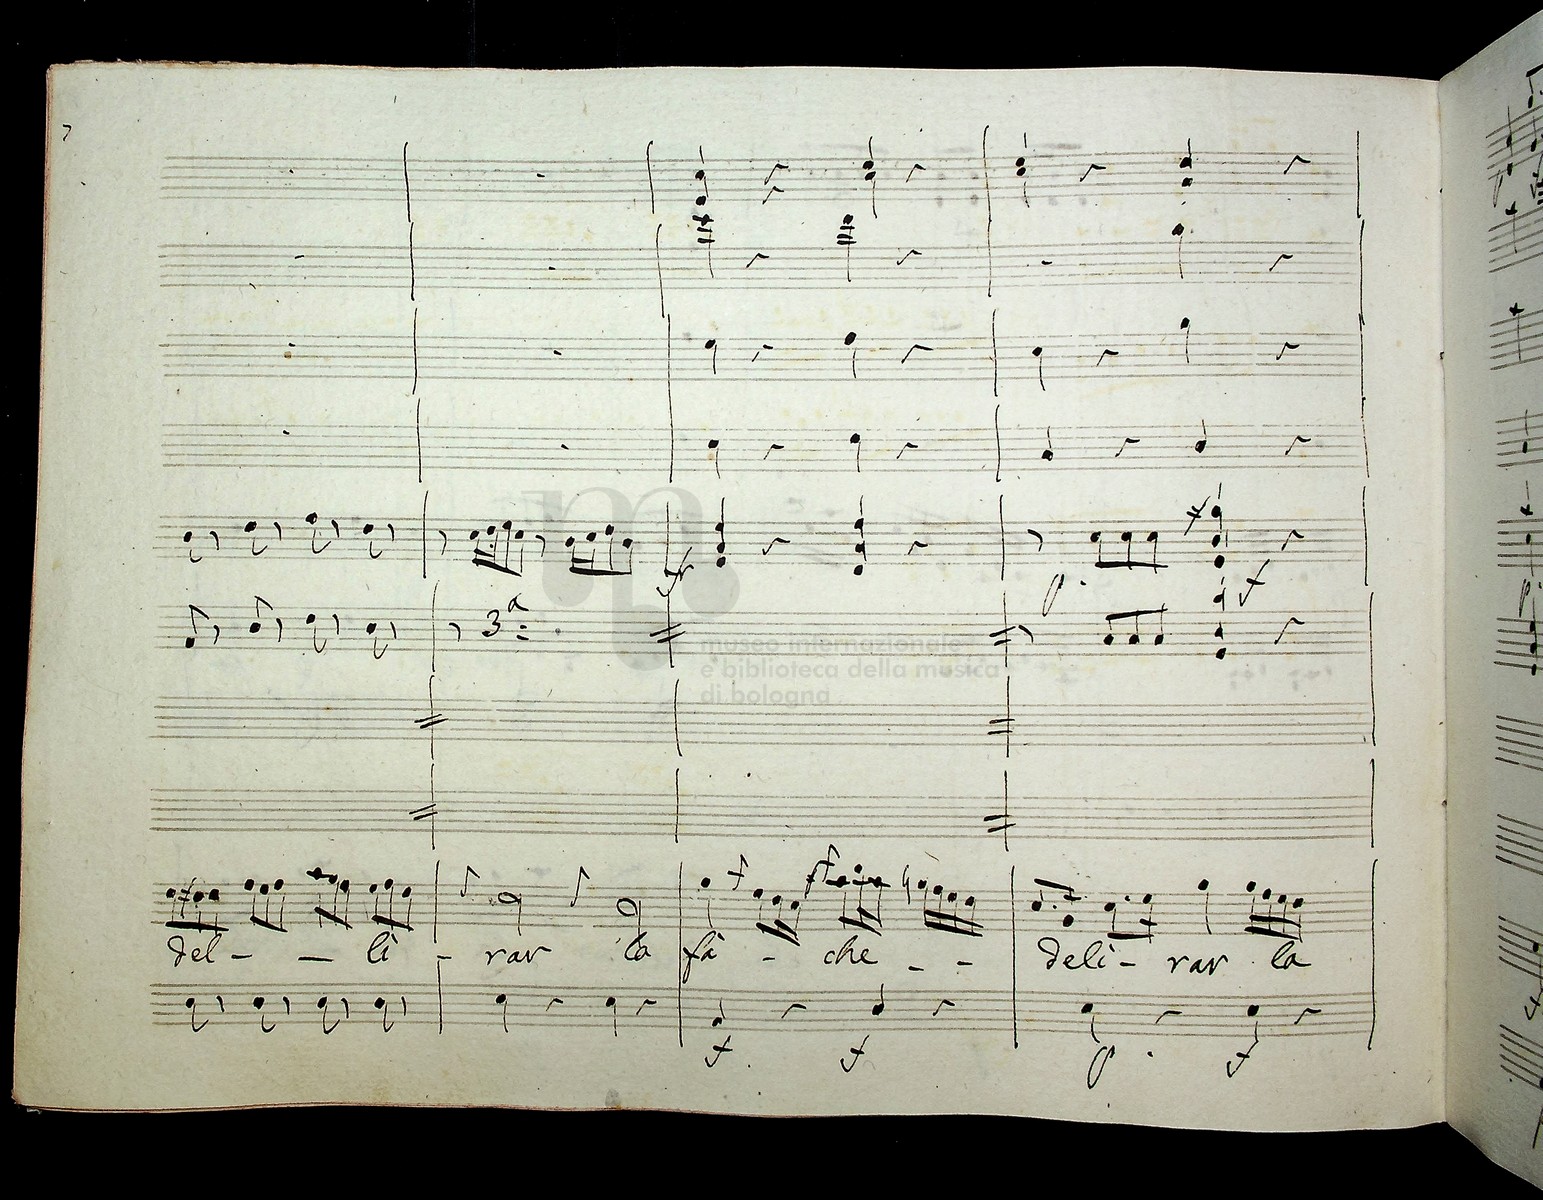 fr
p. f
3ª
museo internazionale
e biblioteca della musica
di bologna
del - - li - rar la fà - che - - deli - rar la
f. f p. f